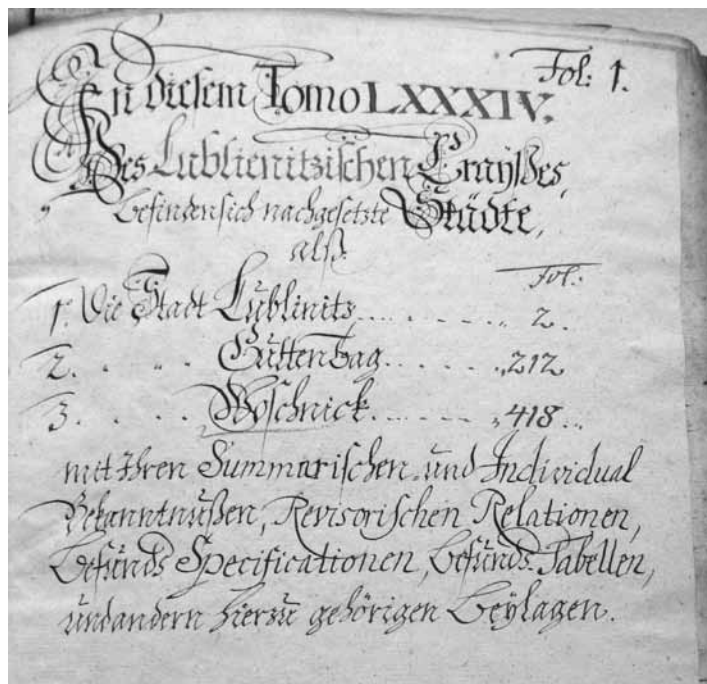 Fol: 1.
In diesem Tomo LXXXIV.
Des Lublienitzischen Crayßes,
befinden sich nachgesetzte Städte,
alß
Fol:
1. Die Stadt Lublinitz........ 2.
2. . . Guttentag....... 212
3. . . Woschnick....... 418...
mit Ihren Summarischen und Individual
Bekanntnußen, Revisorischen Relationen,
Befunds Specificationen, Befunds Tabellen,
und andern hierzu gehörigen Beÿlagen.